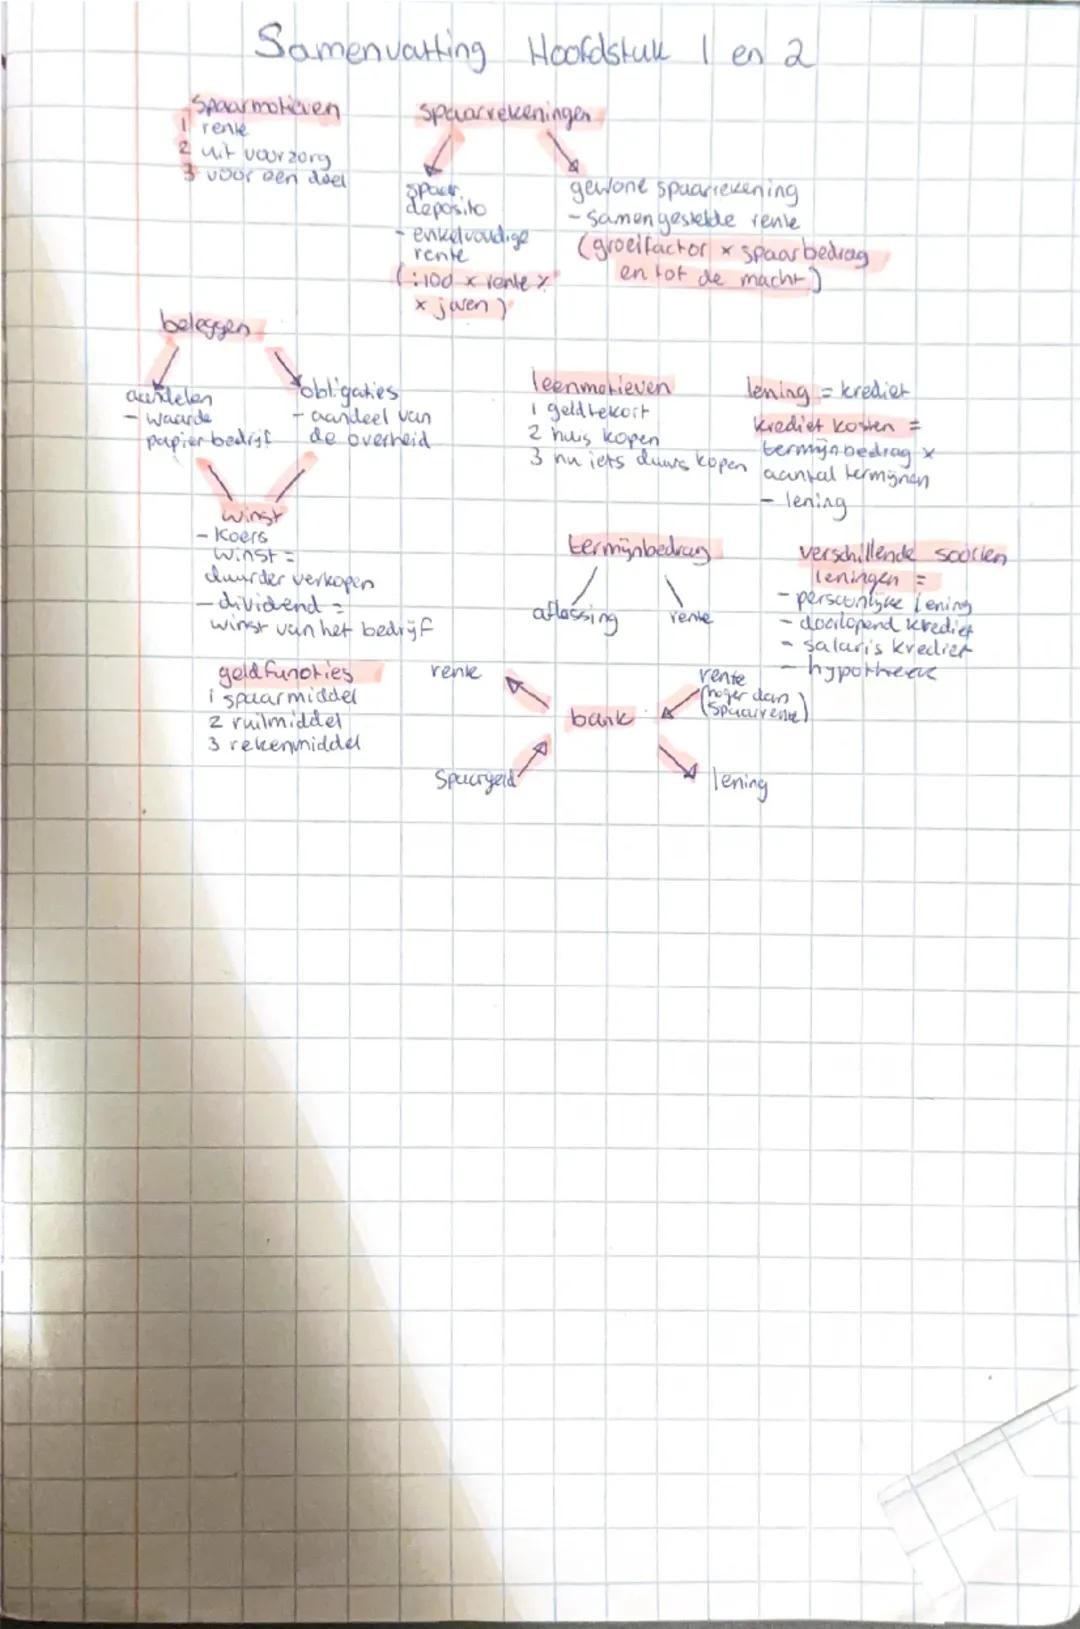 Samenvatting Hoofdstuk 1 en 2
Spaarmotieven
1 rente
2 uit voorzorg
3 voor een doel
spaarrekeningen
spaar
deposito
- enkelvoudige
rente
(:100 x rente %
x jaren)
gewone spaarrekening
- samengestelde rente
(groeifactor x spaarbedrag
en tot de macht)
beleggen
aandelen
- waarde
papier bedrijf
obligaties
- aandeel van
de overheid
winst
- koers
winst =
duurder verkopen
- dividend =
winst van het bedrijf
leenmotieven
1 geldtekort
2 huis kopen
3 nu iets duurs kopen
lening = krediet
krediet kosten =
termijnbedrag x
aantal termijnen
- lening
termijnbedrag
aflossing
rente
verschillende soorten
leningen =
- persoonlijke lening
- doorlopend krediet
- salaris krediet
- hypotheek
geldfuncties
1 spaarmiddel
2 ruilmiddel
3 rekenmiddel
rente
bank
rente
(hoger dan
spaarrente)
spaargeld
lening